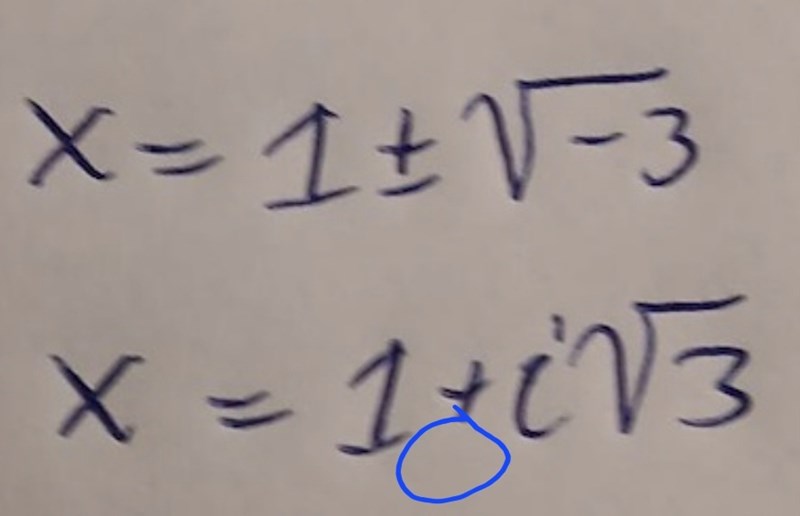 x = 1 ± √-3
x = 1 + i√3